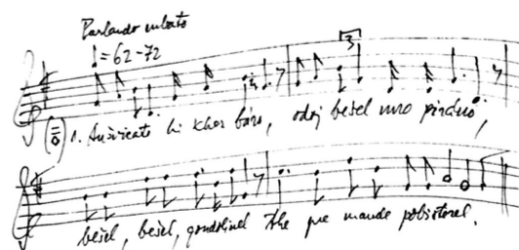 Parlando rubato
♩=62-72
3
1. Aušvicate hi kher báro, odoj bešel mro pirano,
bešel, bešel, gondolinel the pre mande pobisterel.